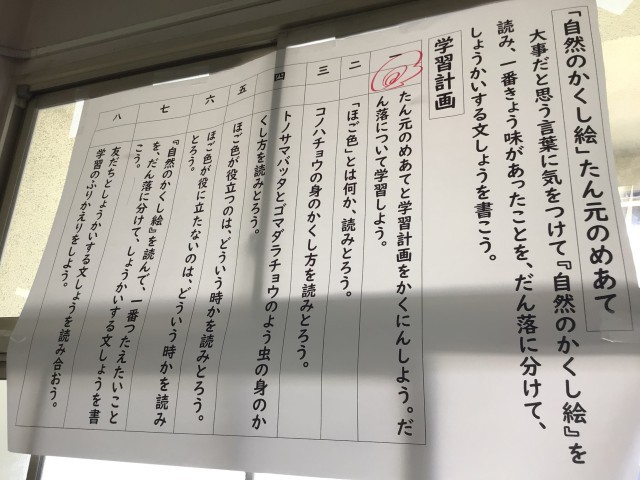 「自然のかくし絵」たん元のめあて
大事だと思う言葉に気をつけて『自然のかくし絵』を
読み、一番きょう味があったことを、だん落に分けて、
しょうかいする文しょうを書こう。
学習計画
一
たん元のめあてと学習計画をかくにんしよう。だ
ん落について学習しよう。
二
「ほご色」とは何か、読みとろう。
三
コノハチョウの身のかくし方を読みとろう。
四
トノサマバッタとゴマダラチョウのよう虫の身のか
くし方を読みとろう。
五
ほご色が役立つのは、どういう時かを読みとろう。
六
ほご色が役に立たないのは、どういう時かを読み
とろう。
七
『自然のかくし絵』を読んで、一番つたえたいこと
を、だん落に分けて、しょうかいする文しょうを書
こう。
八
友だちとしょうかいする文しょうを読み合おう。
学習のふりかえりをしよう。